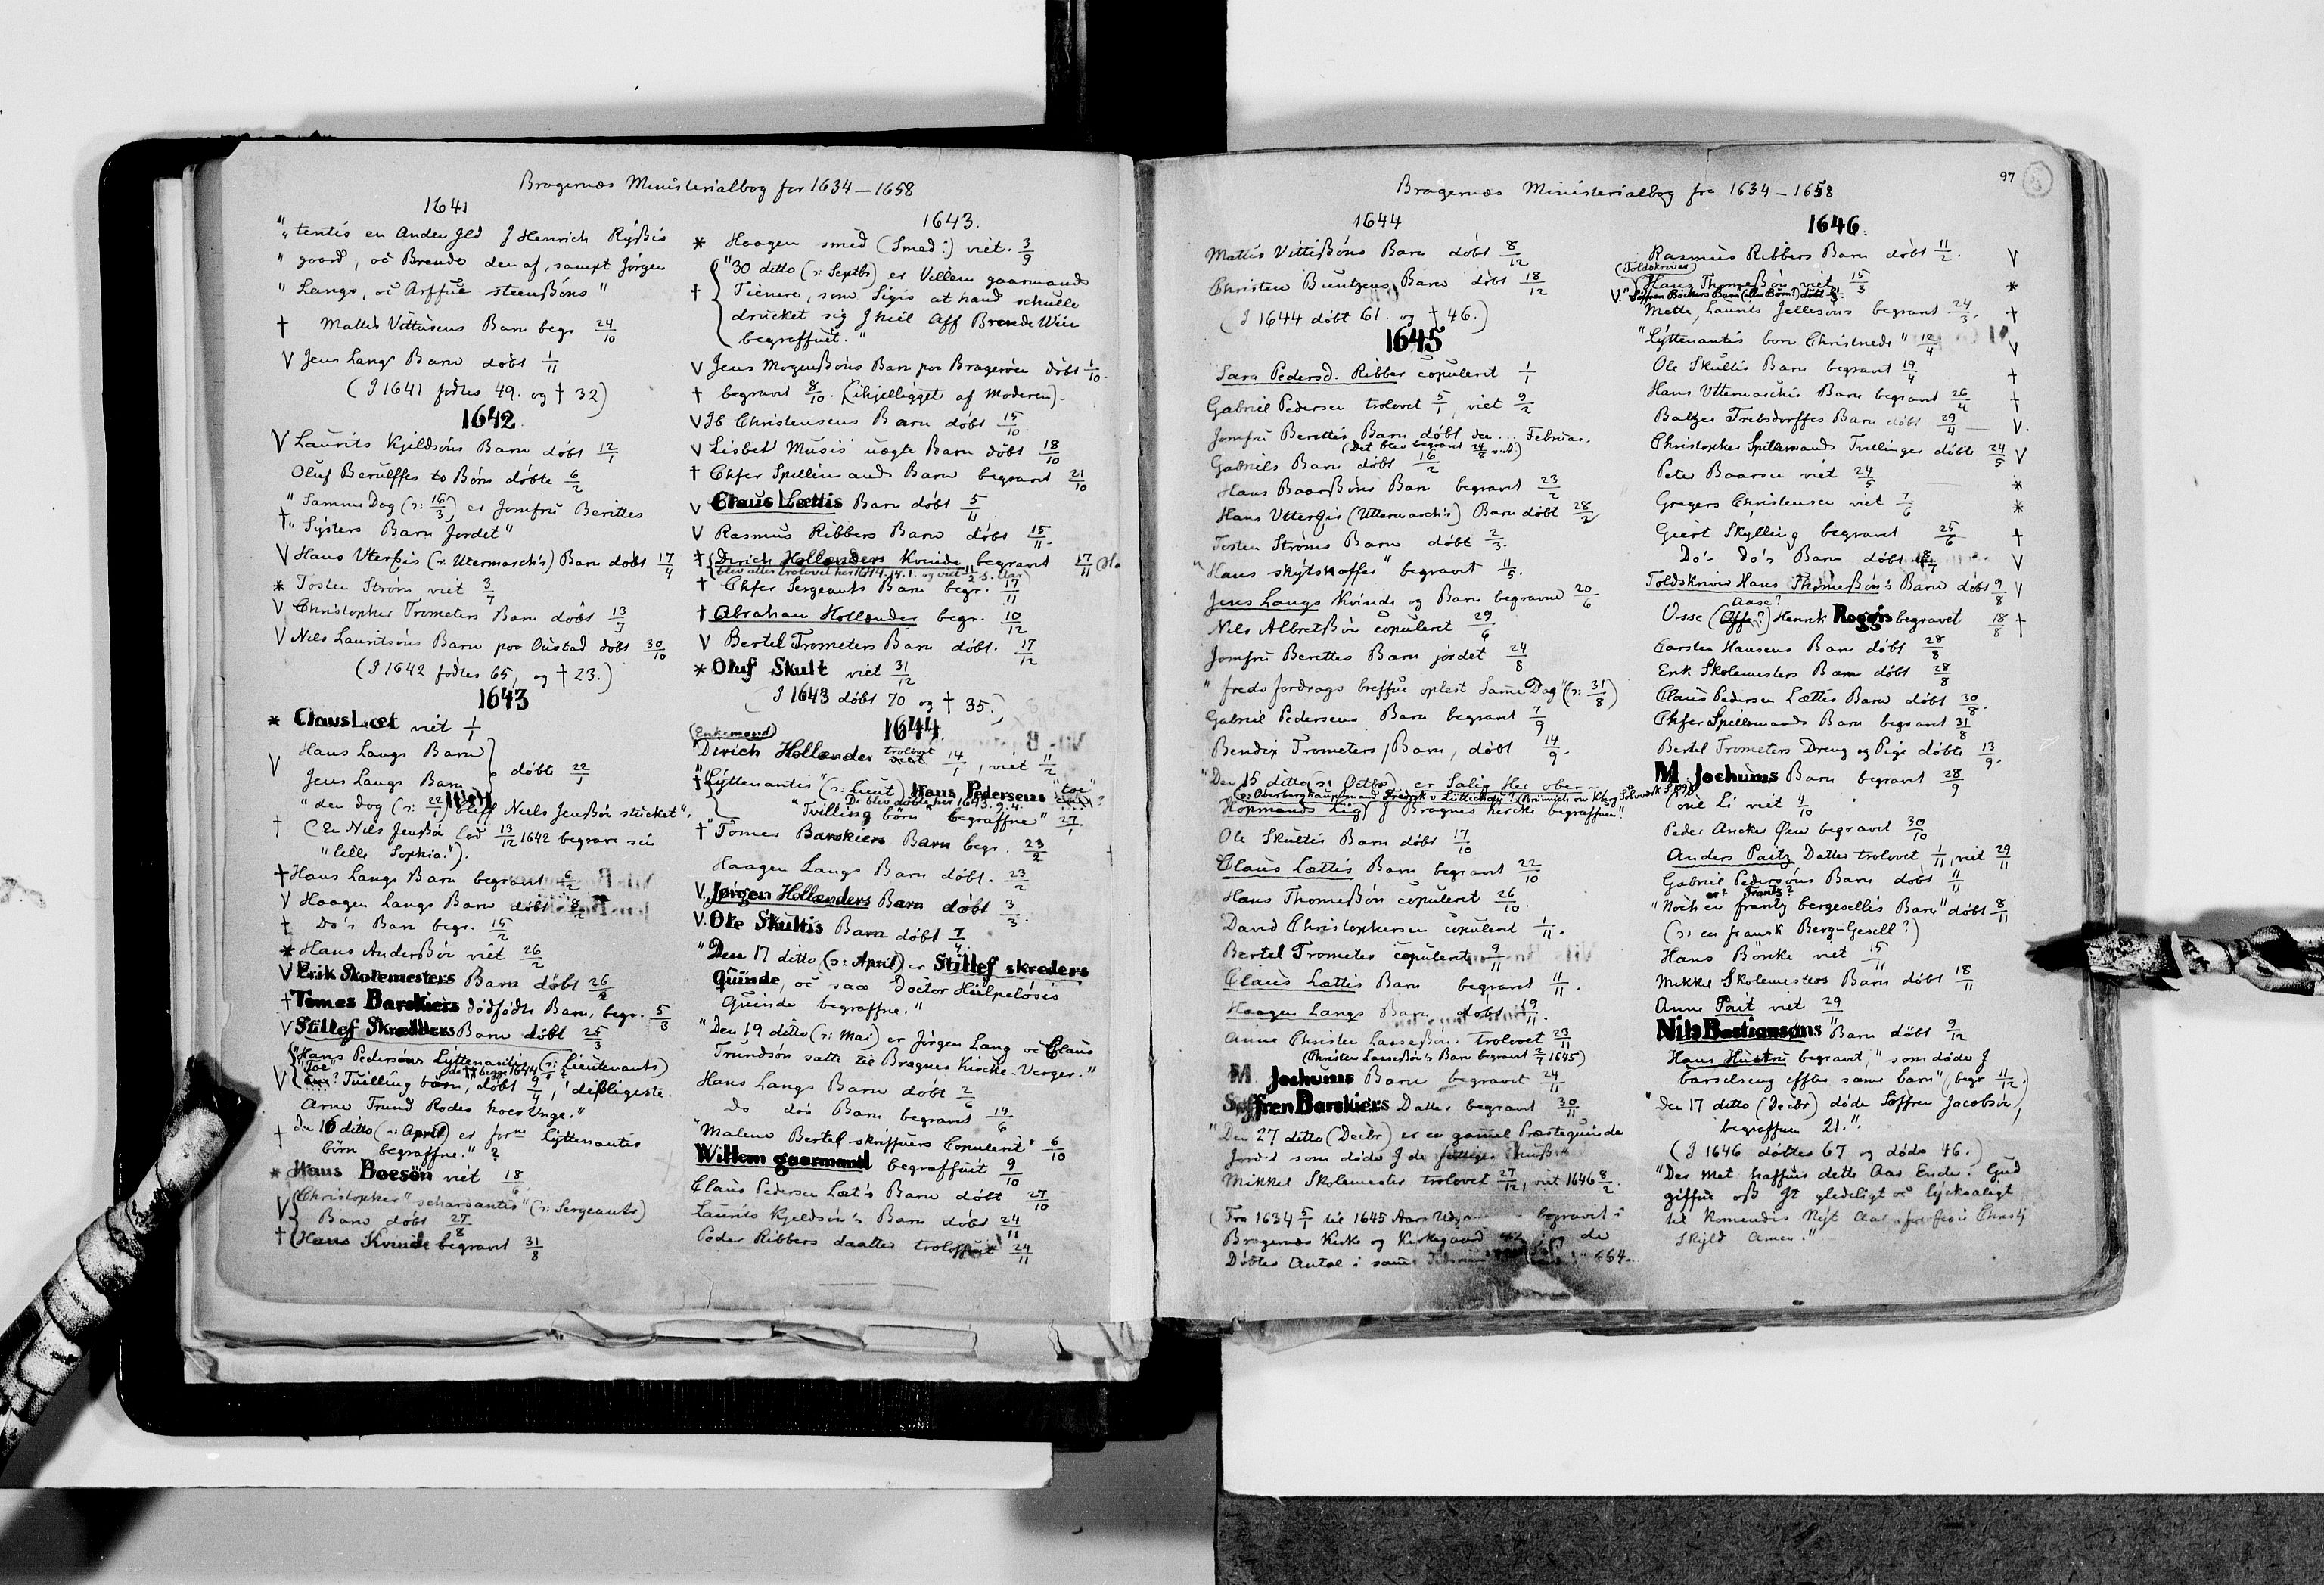 Bragernæs Ministerialbog for 1634–1658
1641
" tentis en Anden Jld J Henrich Ryßis
" goord, oc Brende den af, sampt Jørgen
" Langs, oc Arffue steenßöns"
† Mattis Vittusens Barn begr. 24/10
V Jens Langs Barn döbt 1/11
(I 1641 fødtes 49. og † 32)
1642.
V Laurits Kjeldsöns Barn döbt 12/1
Oluf Berulffes to Börn döbte 6/2
" Samme Dag (ɔ: 16/3) er Jomfru Berittes
†" Systers Barn Jordet"
V Hans Uterßis (ɔ: Utermarch's) Barn döbt 17/4
* Tosten Ström viet 3/7
V Christopher Trometers Barn döbt 13/7
V Nils Lauritsöns Barn paa Oustad döbt 30/10
(I 1642 fødtes 65, og † 23.)
1643
* Claus Læt viet 1/1
Hans Langs Barn
V Jens Langs Barn } döbte 22/1
" den dag (ɔ: 22/1) bleff Niels Jenßön stücket".
† (En Nils Jenßön lod 13/12 1642 begrave sin
"lelle Sophia.").
† Hans Langs Barn begravt 6/2
V Haagen Langs Barn döbt 8/2
† Do's Barn begr. 15/2
* Hans Anderßön viet 26/2
V Erik Skolemesters Barn döbt 26/2
† Tomes Barskiers dödfödte Barn, begr. 5/3
V Stillef Skrædders Barn döbt 25/3
"Hans Pedersöns Lyttenantis (ɔ: Lieutenants)
V Tuilling börn, döbt 9/4, dißligeste
Arne Trund Rodes hoes Unge."
† den 16 ditto (ɔ: April) er forne Lyttenantis
börn begraffne." ?
* Hans Boesön viet 18/6
V Christopher "scharsantis" (ɔ: Sergeants)
Barn döbt 27/8
† Hans Kvinde begravt 31/8
1643.
* Haagen smed (Smed:) viet. 3/9
"30 ditto (ɔ: Septbr) er Villem gaarmands
† Tienere, som Sigis at hand schulle
drucket sig J hiel Aff Brende Wiin
begraffuet."
V Jens Mogenßöns Barn paa Bragerøen döbt 1/10.
† begravt 8/10. (ihjelligget af Moderen).
V Ib Christensens Barn döbt 15/10.
V Lisbet Musis uægte Barn döbt 18/10
† Chfer Spellemands Barn begravet 21/10
V Claus Lættis Barn döbt 5/11
V Rasmus Ribbers Barn döbt 15/11.
† Dirich Hollænders Kvinde begravet 17/11
† Chfer Sergeants Barn begr. 17/11
† Abraham Hollænder begr. 10/12
V Bertel Trometers Barn döbt. 17/12
* Oluf Skult viet 31/12
I 1643 döbt 70 og † 35.)
1644.
(Enkemand)
"Dirich Hollænder trolovet 14/1, viet 11/2
†"Lyttenantis" (ɔ: Lieut) Hans Pedersens "toe"
De blev döbte her 1643. 9.4.
"Tvilling börn" begraffne" 27/1
†" Tomes Barskiers Barn begr. 23/2
Haagen Langs Barn döbt. 23/2
V Jørgen Hollænders Barn döbt 3/3.
V. Ole Skultis Barn döbt 7/4.
"Den 17 ditto (ɔ: April) er Stillef skreders
Quinde, oc saa Doctor Hielpelösis
Quinde begraffne."
"Den 19 ditto (ɔ: Mai) er Jörgen Lang oc Claus
Trundsön satte til Bragnes Kirche-Verger."
Hans Langs Barn döbt 2/6
do dos Barn begravet 14/6
"Malene Bertel skriffuers Copulerit" 6/10
Willem gaarmand begraffuit 9/10
Claus Pedersen Læt's Barn döbt 27/10
Laurits Kjeldsön's Barn döbt 24/11
Peder Ribbers daatter troloffuit 24/11
97
Bragernæs Ministerialbog fra 1634–1658
1644
Mattis Vittißöns Barn döbt 8/12
Christen Buntzens Barn döbt 18/12
(I 1644 döbt 61. og † 46.)
1645
Sara Pedersd. Ribber copulerit 1/1
Gabriel Pedersen trolovet 5/1, viet 9/2
Jomfru Berettis Barn döbt den ... Februar.
(Det blev begravet 24/8 s.A.)
Gabriels Barn döbt 16/2
Hans Baarßöns Barn begravet 23/2
Hans Utterßis (Uttermarch's) Barn döbt 28/2
Tosten Ströms Barn döbt 2/3.
"Hans skytskaffer" begravt 11/5.
Jens Langs Kvinde og Barn begravne 20/6
Nils Albretßön copuleret 29/6
Jomfru Berettes Barn jordet 24/8
"freds fordrags breffue oplest Same Dag" (ɔ: 31/8)
Gabriel Pedersens Barn begravt 7/9
Bendix Trometers Barn, döbt 14/9.
"Den 15 ditto (ɔ: Octbr) er Salig Her ober-
Hopmands Liig J Bragnes kircke begraffuen"
Ole Skultis Barn döbt 17/10
Claus Lættis Barn begravt 22/10
Hans Thomeßön copuleret 26/10.
David Christophersen copulerit 1/11.
Bertel Trometer copulerit 9/11
Claus Lættis Barn begravet 11/11.
Haagen Langs Barn döbt 19/11.
Anne Christen Lasseßöns trolovet 23/11
(Christen Lasseßön's Barn begravt 2/7 1645)
M. Jochums Barn begravet 24/11
Søffren Barskiers Datter begravt 30/11
"Den 27 ditto (Decbr) er en gamel Præstequinde
Jordet som döde J de fattiges huuß"
Mikkel Skolemester trolovet 27/12, viet 1646 8/2.
(Fra 1634 5/1 til 1645 Aars begravet i
Bragernæs Kirke og Kirkegaard og de
Döbtes Antal i same 664.
1646.
Rasmus Ribbers Barn döbt 11/2. V
(Toldskriver)
Hans Thomeßön viet 15/3 *
V. "Söffren Böckers Barn (eller Börn?) döbt
Mette, Laurits Jellesöns begravt 24/3. †
"Lyttenantis born Christnede" 12/4 V
Ole Skultis Barn begravet 19/4 †
Hans Uttermarchis Barn begravt 26/4 †
Baltzer Trebsdorffes Barn döbt 29/4 V.
Christopher Spillemands Tvillinger döbte 24/5 V
Peter Baarsen viet 24/5 *
Gregers Christensen viet 7/6 *
Giert Skylling begravet 25/6 †
Do's do's Barn döbt V
Toldskriver Hans Thomeßön's Barn döbt 9/8 V
Aase?
Osse (Offe?) Henrik Roggis begravet 18/8 †
Carsten Hansens Barn döbt 28/8
Erik Skolemesters Barn döbt 28/8
Claus Pedersen Lættis Barn döbt 30/8.
Chfer Spillemands Barn begravet 31/8
Bertel Trometers Dreng og Pige döbte 13/9.
M. Jochums Barn begravet 28/9
Li viet 4/10
Peder Ancker Øen begravet 30/10
Anders Paitz Datter trolovet 1/11, viet 29/11
Gabriel Pedersöns Barn döbt 11/11
er? Frantz?
"Noch en frantz bergesellis Barn" döbt 8/11
(ɔ: en fransk Berg-Gesell?)
Hans Bönke viet 15/11
Mikkel Skolemesters Barn döbt 18/11
Anne Pait viet 29/11
Nils Bastiansøns Barn döbt 9/12
Hans Hustru begravt, "som döde J
barselseng efftter same barn", begr 11/12.)
"Den 17 ditto (Decbr) döde Söffren Jacobsön,
begraffuen 21."
(I 1646 döbtes 67 og döde 46.)
"Der met haffuer dette Aar Ende. Gud
giffue oß Jt gledeligt oc lycksaligt
til Komendis Nyt Aar for Jesu Christj
Skyld Amen."